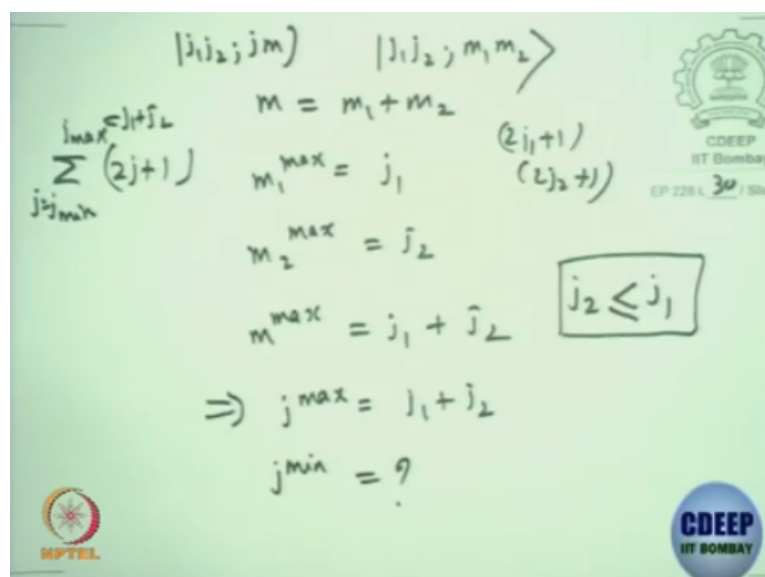 |j₁j₂; jm⟩ |j₁j₂; m₁m₂⟩
m = m₁ + m₂
jmax = j₁+j₂
Σ (2j+1)
j=jmin
m₁^max = j₁
(2j₁+1)
(2j₂+1)
m₂^max = j₂
m^max = j₁ + j₂
j₂ ≤ j₁
⇒ j^max = j₁ + j₂
j^min = ?
CDEEP
IIT Bombay
EP 228 L 30 / Sli
NPTEL
CDEEP
IIT BOMBAY